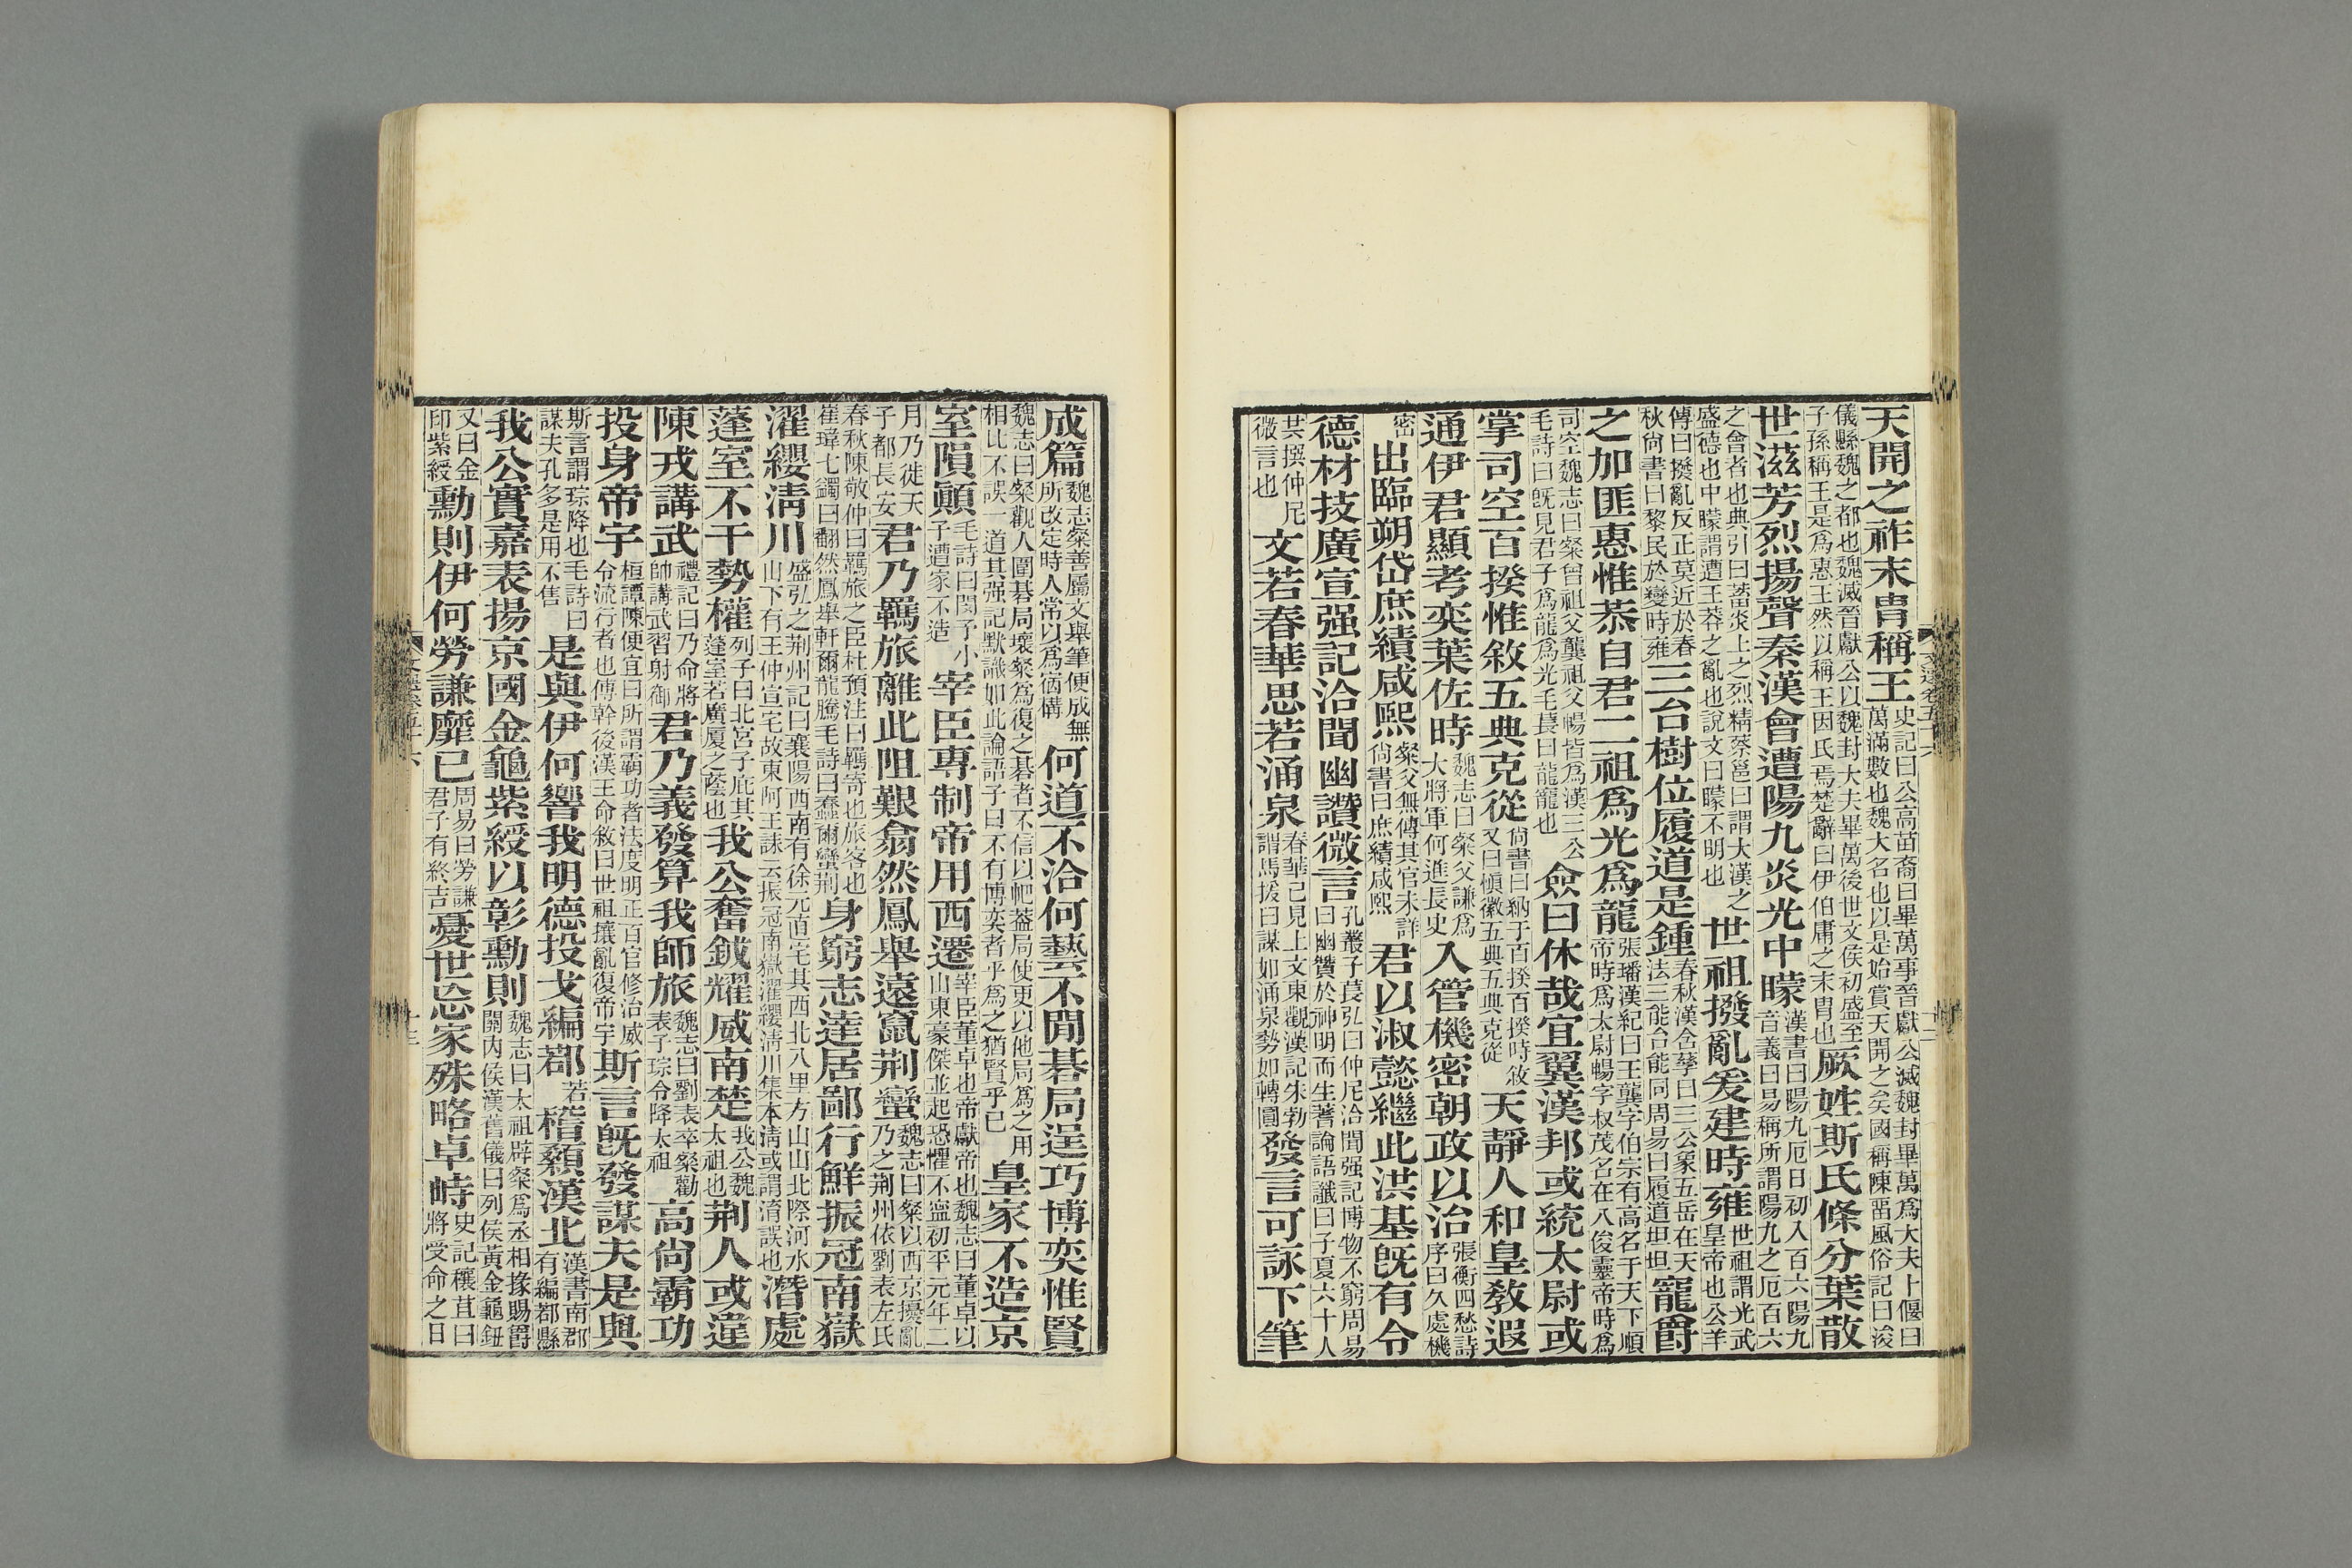 天開之祚末冑稱王史記曰公高苗裔曰畢萬事晉獻公滅魏封畢萬爲大夫卜偃曰萬滿數也魏大名也以是始賞天開之矣國稱陳畱風俗記曰浚
儀縣魏之都也魏滅晉獻公以魏封大夫畢萬後世文侯初盛至子孫稱王是爲惠王然以稱王因氏焉楚辭曰伊伯庸之末冑也厥姓斯氏條分葉散
世滋芳烈揚聲秦漢會遭陽九炎光中矇漢書曰陽九厄曰初入百六陽九音義曰易稱所謂陽九之厄百六
之會者也典引曰蓄炎上之烈精蔡邕曰謂大漢之盛德也中矇謂遭王莽之亂也說文曰矇不明也世祖撥亂爰建時雍世祖謂光武皇帝也公羊
傳曰撥亂反正莫近於春秋尙書曰黎民於變時雍三台樹位履道是鍾春秋漢含孳曰三公象五岳在天法三能台能同周易曰履道坦坦寵爵
之加匪惠惟恭自君二祖爲光爲龍張璠漢紀曰王龔字伯宗有高名于天下順帝時爲太尉暢字叔茂名在八俊靈帝時爲
司空魏志曰粲曾祖父龔祖父暢皆爲漢三公毛詩曰旣見君子爲龍爲光毛萇曰龍寵也僉曰休哉宜翼漢邦或統太尉或
掌司空百揆惟敘五典克從尙書曰納于百揆百揆時敘又曰愼徽五典五典克從天靜人和皇敎遐
通伊君顯考奕葉佐時魏志曰粲父謙爲大將軍何進長史入管機密朝政以治張衡四愁詩序曰久處機
密出臨朔岱庶績咸熙粲父無傳其官未詳尙書曰庶績咸熙君以淑懿繼此洪基旣有令
德材技廣宣强記洽聞幽讚微言孔叢子萇弘曰仲尼洽聞强記博物不窮周易曰幽贊於神明而生蓍論語讖曰子夏六十人
共撰仲尼微言也文若春華思若涌泉春華已見上文東觀漢記朱勃謂馬援曰謀如涌泉勢如轉圜發言可詠下筆
成篇魏志粲善屬文舉筆便成無所改定時人常以爲宿構何道不洽何藝不閒碁局逞巧博奕惟賢
魏志曰粲觀人圍碁局壞粲爲復之碁者不信以帊蓋局使更以他局爲之用相比不誤一道其强記默識如此論語子曰不有博奕者乎爲之猶賢乎已皇家不造京
室隕顚毛詩曰閔予小子遭家不造宰臣專制帝用西遷宰臣董卓也帝獻帝也魏志曰董卓以山東豪傑並起恐懼不寍初平元年二
月乃徙天子都長安君乃羈旅離此阻艱翕然鳳舉遠竄荆蠻魏志曰粲以西京擾亂乃之荆州依劉表左氏
春秋陳敬仲曰羈旅之臣杜預注曰羈寄也旅客也崔瑋七蠲曰翻然鳳舉軒爾龍騰毛詩曰蠢爾蠻荆身窮志達居鄙行鮮振冠南嶽
濯纓淸川盛弘之荆州記曰襄陽西南有徐元直宅其西北八里方山山北際河水山下有王仲宣宅故東阿王誄云振冠南嶽濯纓淸川集本淸或謂淯誤也潛處
蓬室不干勢權列子曰北宮子庇其蓬室若廣廈之蔭也我公奮鉞耀威南楚我公魏太祖也荆人或違
陳戎講武禮記曰乃命將帥講武習射御君乃義發算我師旅魏志曰劉表卒粲勸表子琮令降太祖高尙霸功
投身帝宇桓譚陳便宜曰所謂霸功者法度明正百官修治威令流行者也傅幹後漢王命敘曰世祖攘亂復帝宇斯言旣發謀夫是與
斯言謂琮降也毛詩曰謀夫孔多是用不售是與伊何響我明德投戈編鄀稽顙漢北漢書南郡有編都縣若
我公實嘉表揚京國金龜紫綬以彰勳則魏志曰太祖辟粲爲丞相掾賜爵關內侯漢舊儀曰列侯黃金龜鈕
又曰金印紫綬勳則伊何勞謙靡已周易曰勞謙君子有終吉憂世忘家殊略卓峙史記穰苴曰將受命之日